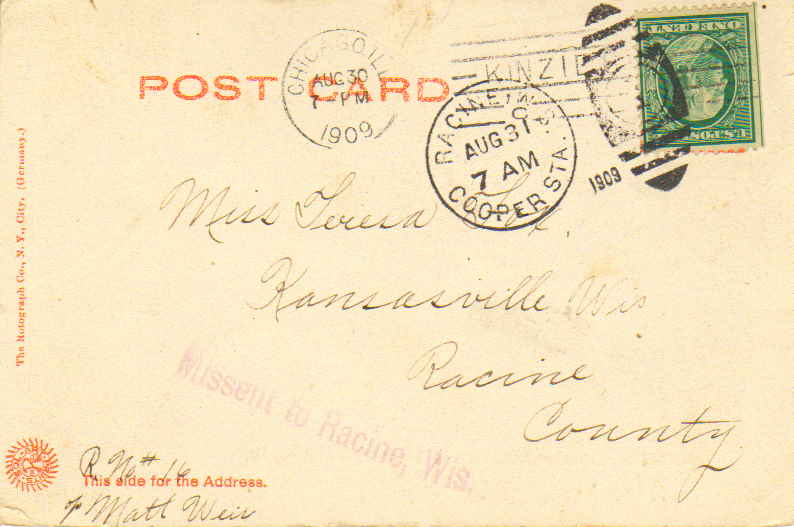 POST CARD
CHICAGO, ILL.
AUG 30
7 - PM
1909
KINZIE
RACINE, WIS.
AUG 31
7 AM
COOPER STA.
1909
ONE CENT
U.S. POSTAGE
Miss Teresa Fox.
Kansasville Wis
Racine
County
Missent to Racine, Wis.
R. No # 16
This side for the Address.
% Matt Weir
The Rotograph Co., N. Y., City. (Germany.)